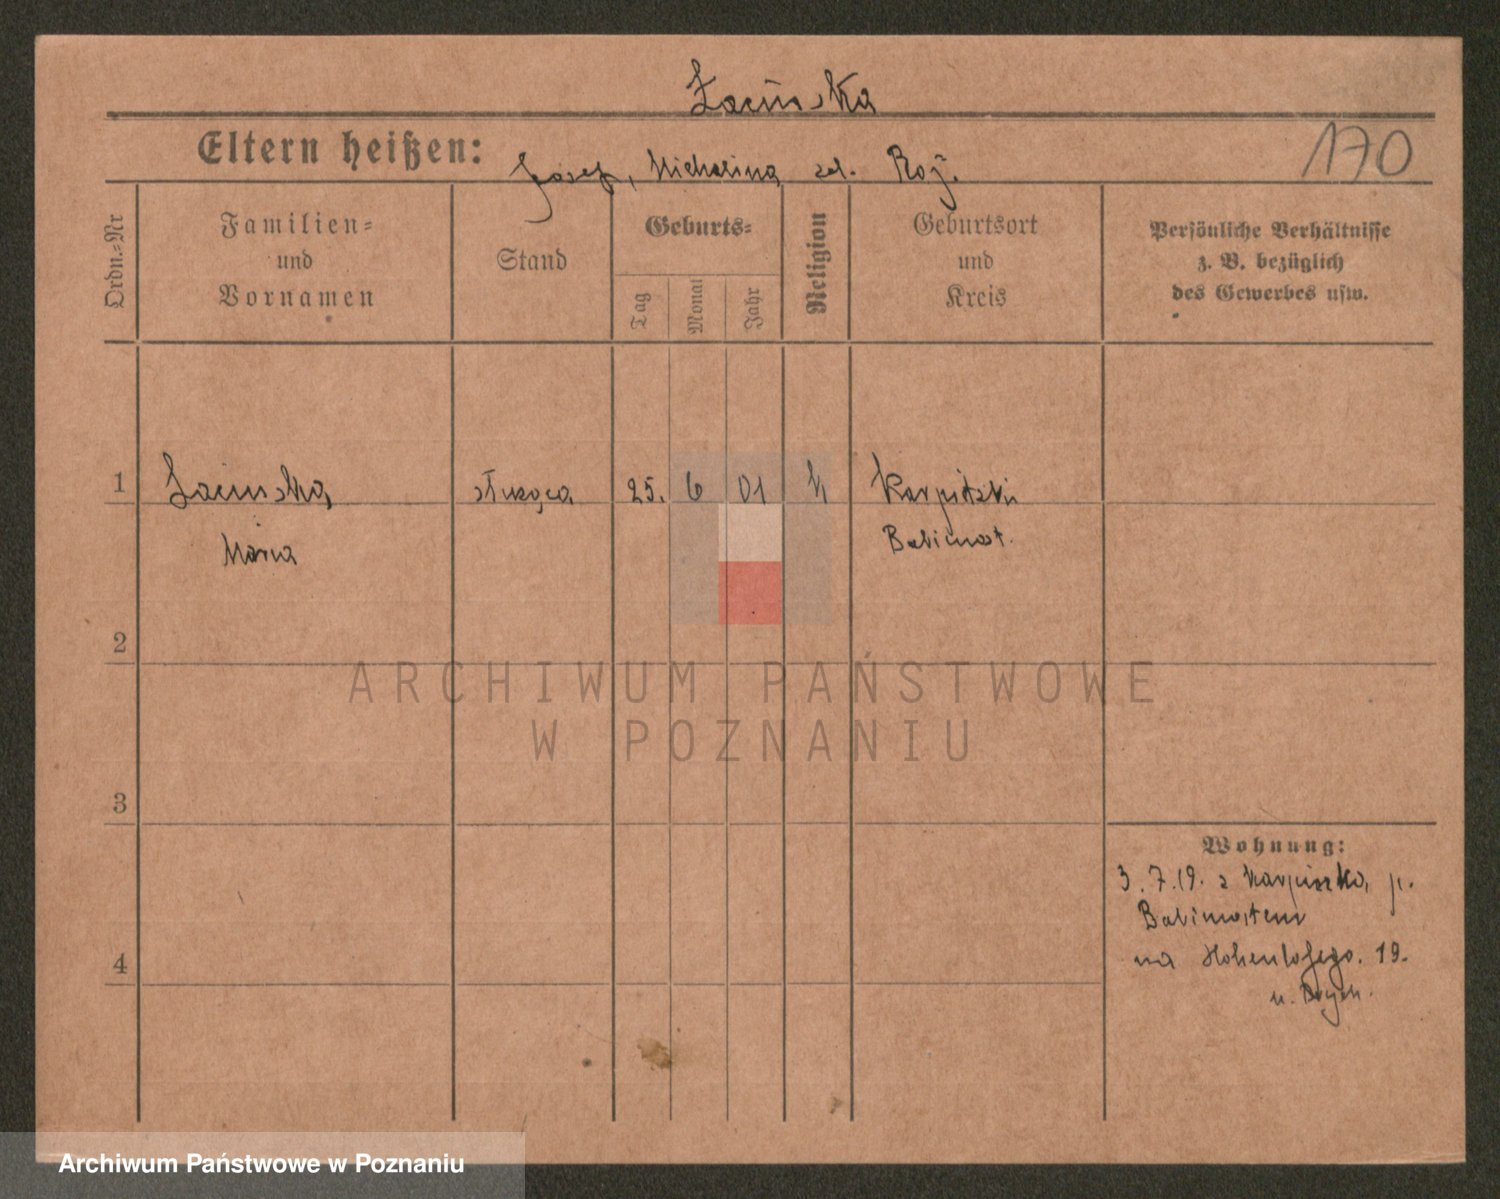 Łacińska
170
Eltern heißen: Josef, Michalina zd. Roy.
Ordn.=Nr
Familien=
und
Vornamen
Stand
Geburts=
Tag
Monat
Jahr
Religion
Geburtsort
und
Kreis
Persönliche Verhältnisse
z. B. bezüglich
des Gewerbes usw.
1 Łacińska, służąca 25. 6 01 k
Maria Babimost.
2
ARCHIWUM PAŃSTWOWE
W POZNANIU
3
Wohnung:
3.7.19. z p.
Babimostem
4
na Hohenlohego. 19.
u.
Archiwum Państwowe w Poznaniu